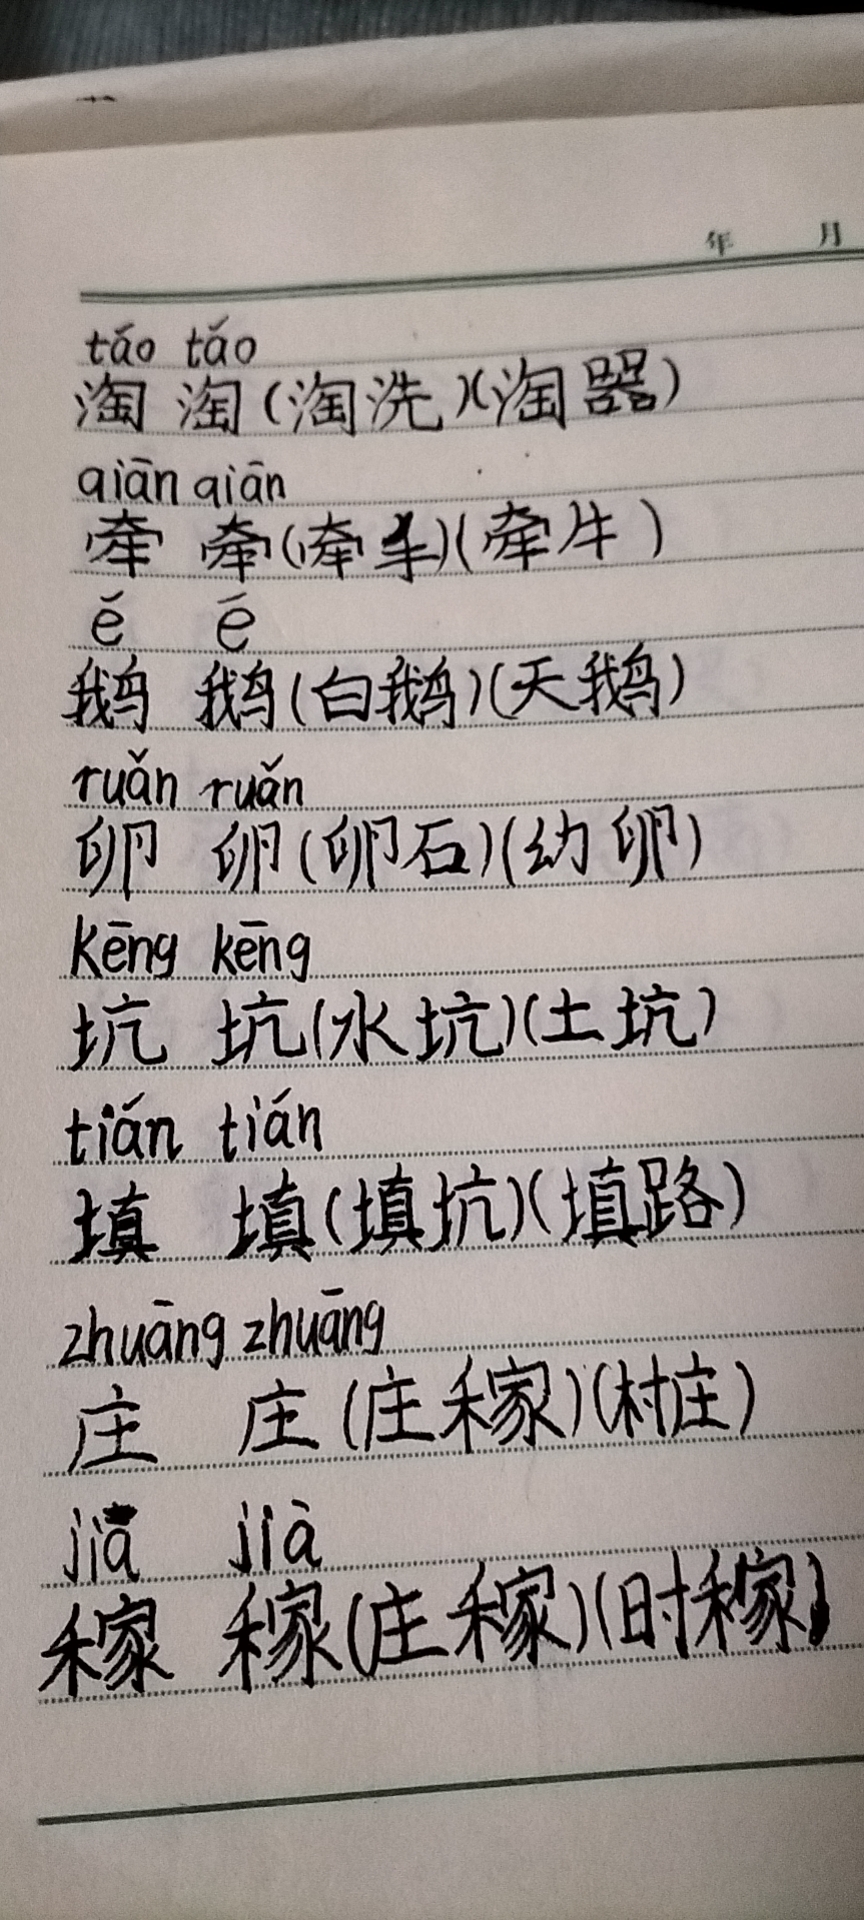 年 月
táo táo
淘 淘(淘洗)(淘器)
qiān qiān
牵 牵(牵羊)(牵牛)
é ē
鹅 鹅(白鹅)(天鹅)
ruǎn ruǎn
卵 卵(卵石)(幼卵)
kēng kēng
坑 坑(水坑)(土坑)
tián tián
填 填(填坑)(填路)
zhuāng zhuāng
庄 庄(庄稼)(村庄)
jià jià
稼 稼(庄稼)(时稼)